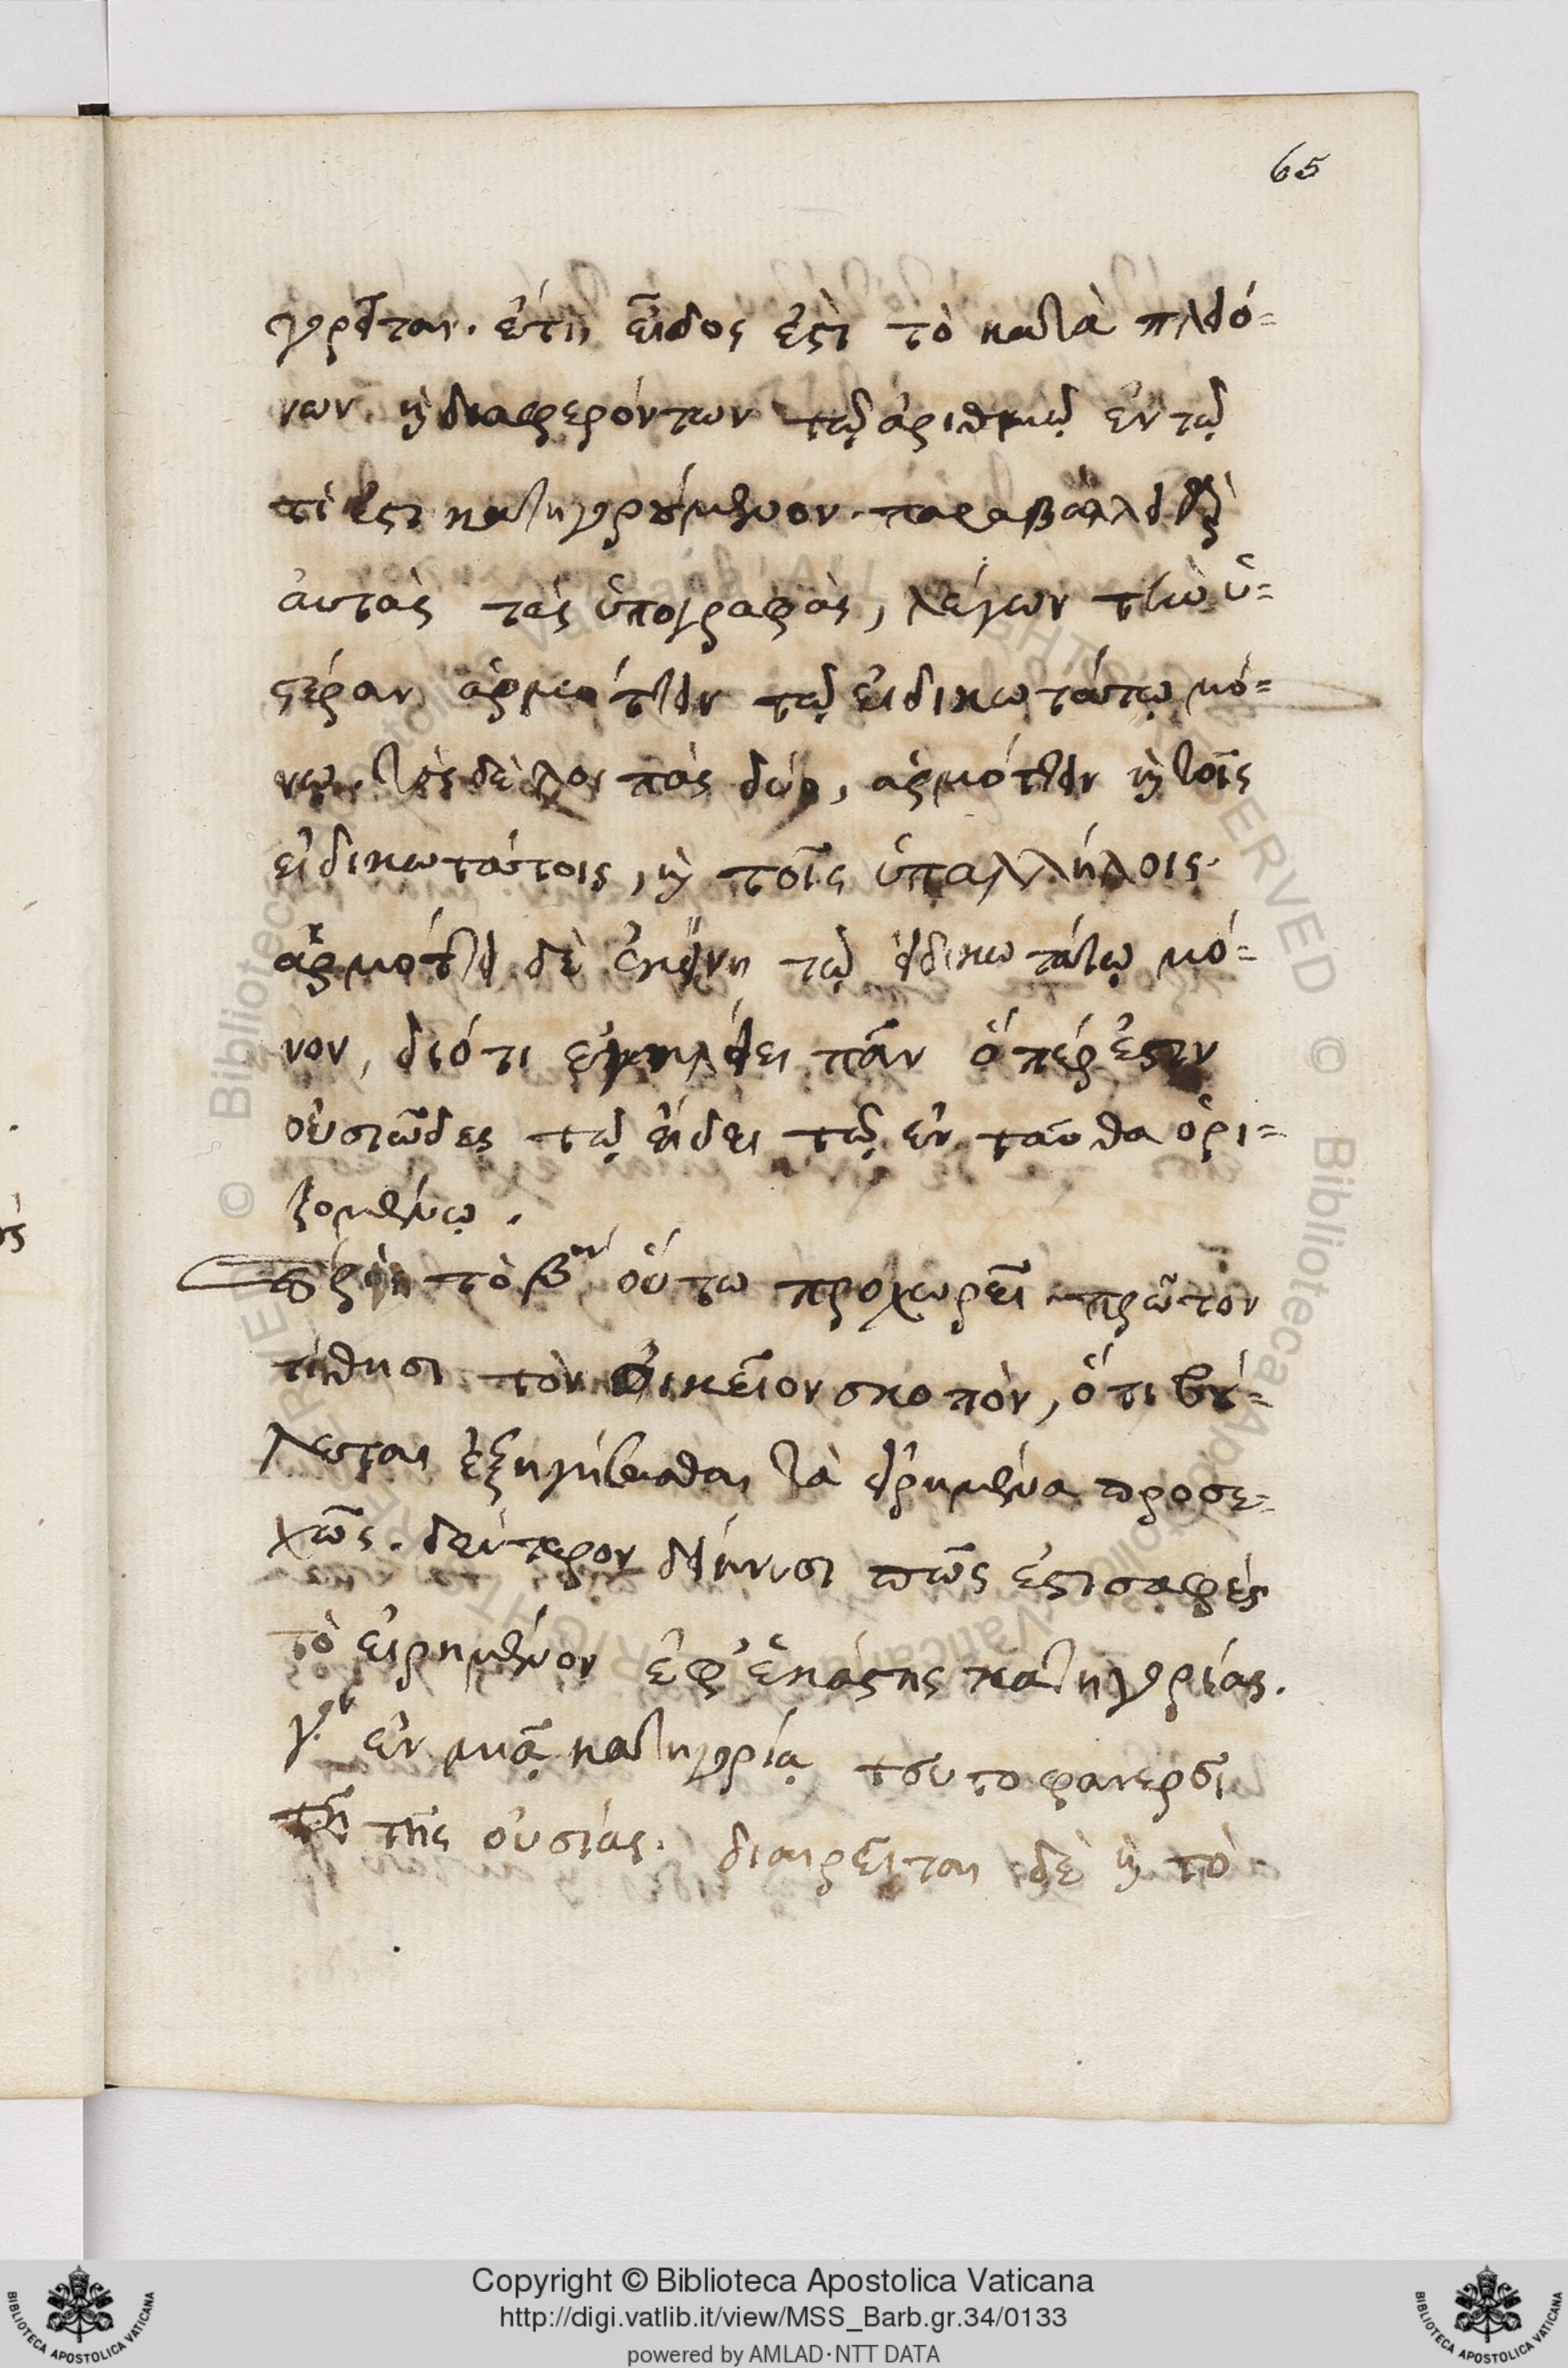 65
γορεῖται. ἔτι εἶδος ἐστὶ τὸ κατὰ πλειό=
νων, καὶ διαφερόντων τῷ ἀριθμῷ ἐν τῷ
τί ἐστι κατηγορούμενον. παραβάλλει δὲ
αὐτὰς τὰς ὑπογραφὰς, λέγων τὴν ὑ=
στέραν ἁρμόττειν τῷ εἰδικωτάτῳ μό=
νῳ. τὰς δὲ λοιπὰς δύο, ἁρμόττειν καὶ τοῖς
εἰδικωτάτοις, καὶ τοῖς ὑπαλλήλοις.
ἁρμόττει δὲ ἐκείνη τῷ εἰδικωτάτῳ μό=
νον, διότι πᾶν ὅπερ ἐστιν
οὐσιῶδες τῷ εἴδει τῷ ἐνταῦθα ὁρι=
ζομένῳ.
τὸ βον οὕτω προχωρεῖ πρῶτον
τίθησι τὸν οἰκεῖον σκοπὸν, ὅτι βού=
λεται ἐξηγήσασθαι τὰ εἰρημένα προσε=
χῶς. δεύτερον δείκνυσι πῶς ἐστι σαφὲς
τὸ εἰρημένον ἐφ' ἑκάστης κατηγορίας.
γον ἐν μιᾷ κατηγορίᾳ τουτο φανεροῖ
τῇ τῆς οὐσίας. διαιρεῖται δὲ καὶ τὸ
Copyright © Biblioteca Apostolica Vaticana
http://digi.vatlib.it/view/MSS_Barb.gr.34/0133
powered by AMLAD·NTT DATA